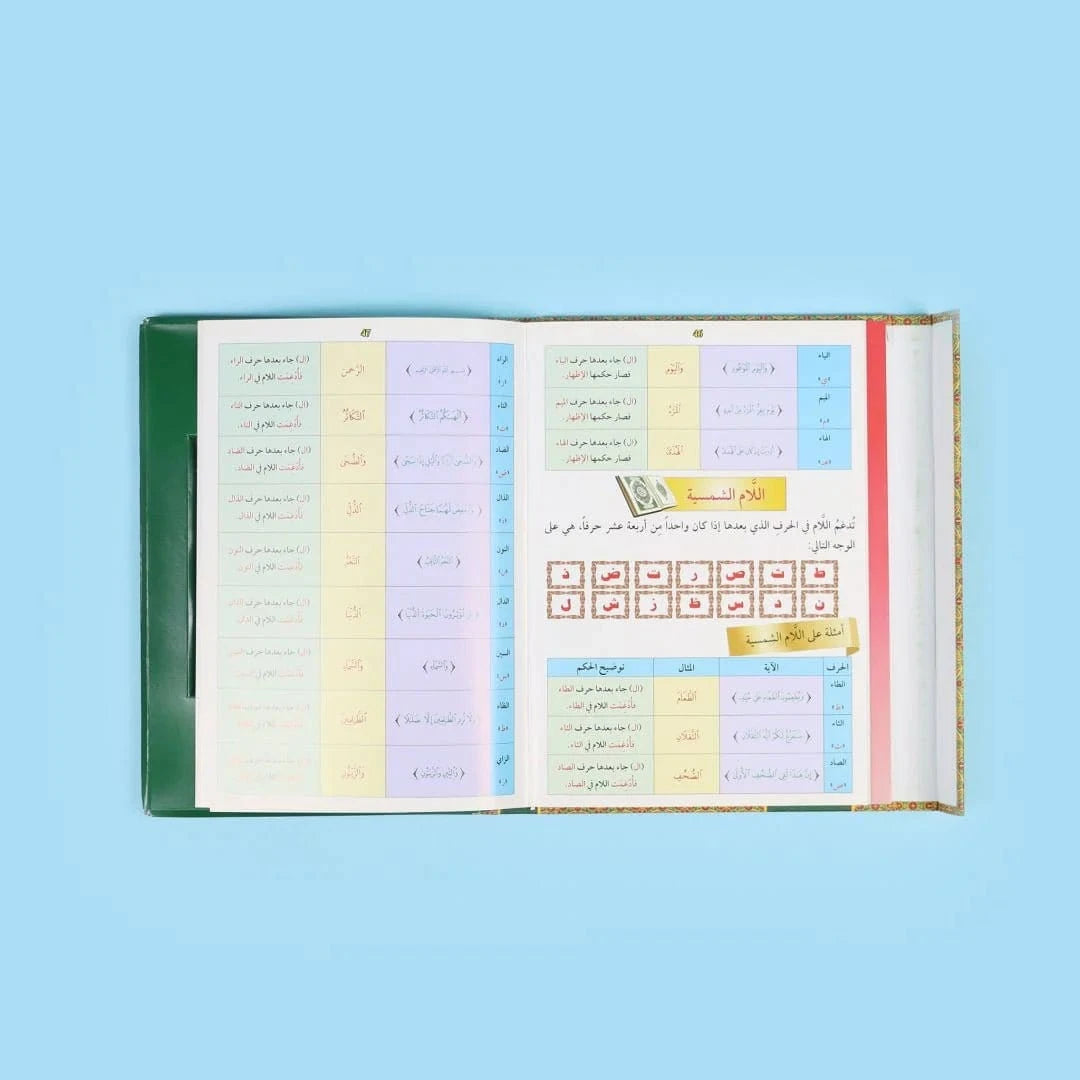 46
الياء ﴿ وَٱلْيَوْمِ ٱلْمَوْعُودِ ﴾ وَٱلْيَوْمِ (ال) جاء بعدها حرف الياء
«ي» فصار حكمها الإظهار.
الميم ﴿ يَوْمَ يَفِرُّ ٱلْمَرْءُ مِنْ أَخِيهِ ﴾ ٱلْمَرْءُ (ال) جاء بعدها حرف الميم
«م» فصار حكمها الإظهار.
الهاء ﴿ أَرَءَيْتَ إِن كَانَ عَلَى ٱلْهُدَىٰ ﴾ ٱلْهُدَىٰ (ال) جاء بعدها حرف الهاء
«هـ» فصار حكمها الإظهار.
اللَّام الشمسية
تُدغَمُ اللَّام في الحرفِ الذي بعدها إذا كان واحداً مِن أربعة عشر حرفاً، هي على
الوجه التالي:
ط ث ص ر ت ض ذ
ن د س ظ ز ش ل
أمثلة على اللَّام الشمسية
الحرف الآية المثال توضيح الحكم
الطاء ﴿ وَيُطْعِمُونَ ٱلطَّعَامَ عَلَىٰ حُبِّهِۦ ﴾ ٱلطَّعَامَ (ال) جاء بعدها حرف الطاء
«ط» فأُدغِمَت اللام في الطاء.
الثاء ﴿ سَنَفْرُغُ لَكُمْ أَيُّهَ ٱلثَّقَلَانِ ﴾ ٱلثَّقَلَانِ (ال) جاء بعدها حرف الثاء
«ث» فأُدغِمَت اللام في الثاء.
الصاد ﴿ إِنَّ هَٰذَا لَفِى ٱلصُّحُفِ ٱلْأُولَىٰ ﴾ ٱلصُّحُفِ (ال) جاء بعدها حرف الصاد
«ص» فأُدغِمَت اللام في الصاد.
47
الراء ﴿ بِسْمِ ٱللَّهِ ٱلرَّحْمَٰنِ ٱلرَّحِيمِ ﴾ ٱلرَّحْمَٰنِ (ال) جاء بعدها حرف الراء،
«ر» فأُدغِمَت اللام في الراء.
التاء ﴿ أَلْهَىٰكُمُ ٱلتَّكَاثُرُ ﴾ ٱلتَّكَاثُرُ (ال) جاء بعدها حرف التاء
«ت» فأُدغِمَت اللام في التاء.
الضاد ﴿ وَٱلضُّحَىٰ وَٱلَّيْلِ إِذَا سَجَىٰ ﴾ وَٱلضُّحَىٰ (ال) جاء بعدها حرف الضاد
«ض» فأُدغِمَت اللام في الضاد.
الذال لَهُمَا جَنَاحَ ٱلذُّلِّ ﴾ ٱلذُّلِّ (ال) جاء بعدها حرف الذال
فأُدغِمَت اللام في الذال.
النون ﴿ ٱلنَّجْمُ ٱلثَّاقِبُ ﴾ ٱلنَّجْمُ (ال) جاء بعدها حرف النون
«ن» فأُدغِمَت اللام في النون.
الدال تُؤْثِرُونَ ٱلْحَيَوٰةَ ٱلدُّنْيَا ﴾ ٱلدُّنْيَا (ال) جاء بعدها حرف الدال
«د» فأُدغِمَت اللام في الدال.
السين ﴿ وَٱلسَّمَاءِ ﴾ وَٱلسَّمَاءِ (ال) جاء بعدها حرف السين
«س» فأُدغِمَت اللام في
الظاء تَزِدِ ٱلظَّٰلِمِينَ إِلَّا ضَلَٰلًا ﴾ ٱلظَّٰلِمِينَ (ال) جاء بعدها حرف
«ظ» اللام في
الزاي ﴿ وَٱلتِّينِ وَٱلزَّيْتُونِ ﴾ وَٱلزَّيْتُونِ
«ز»